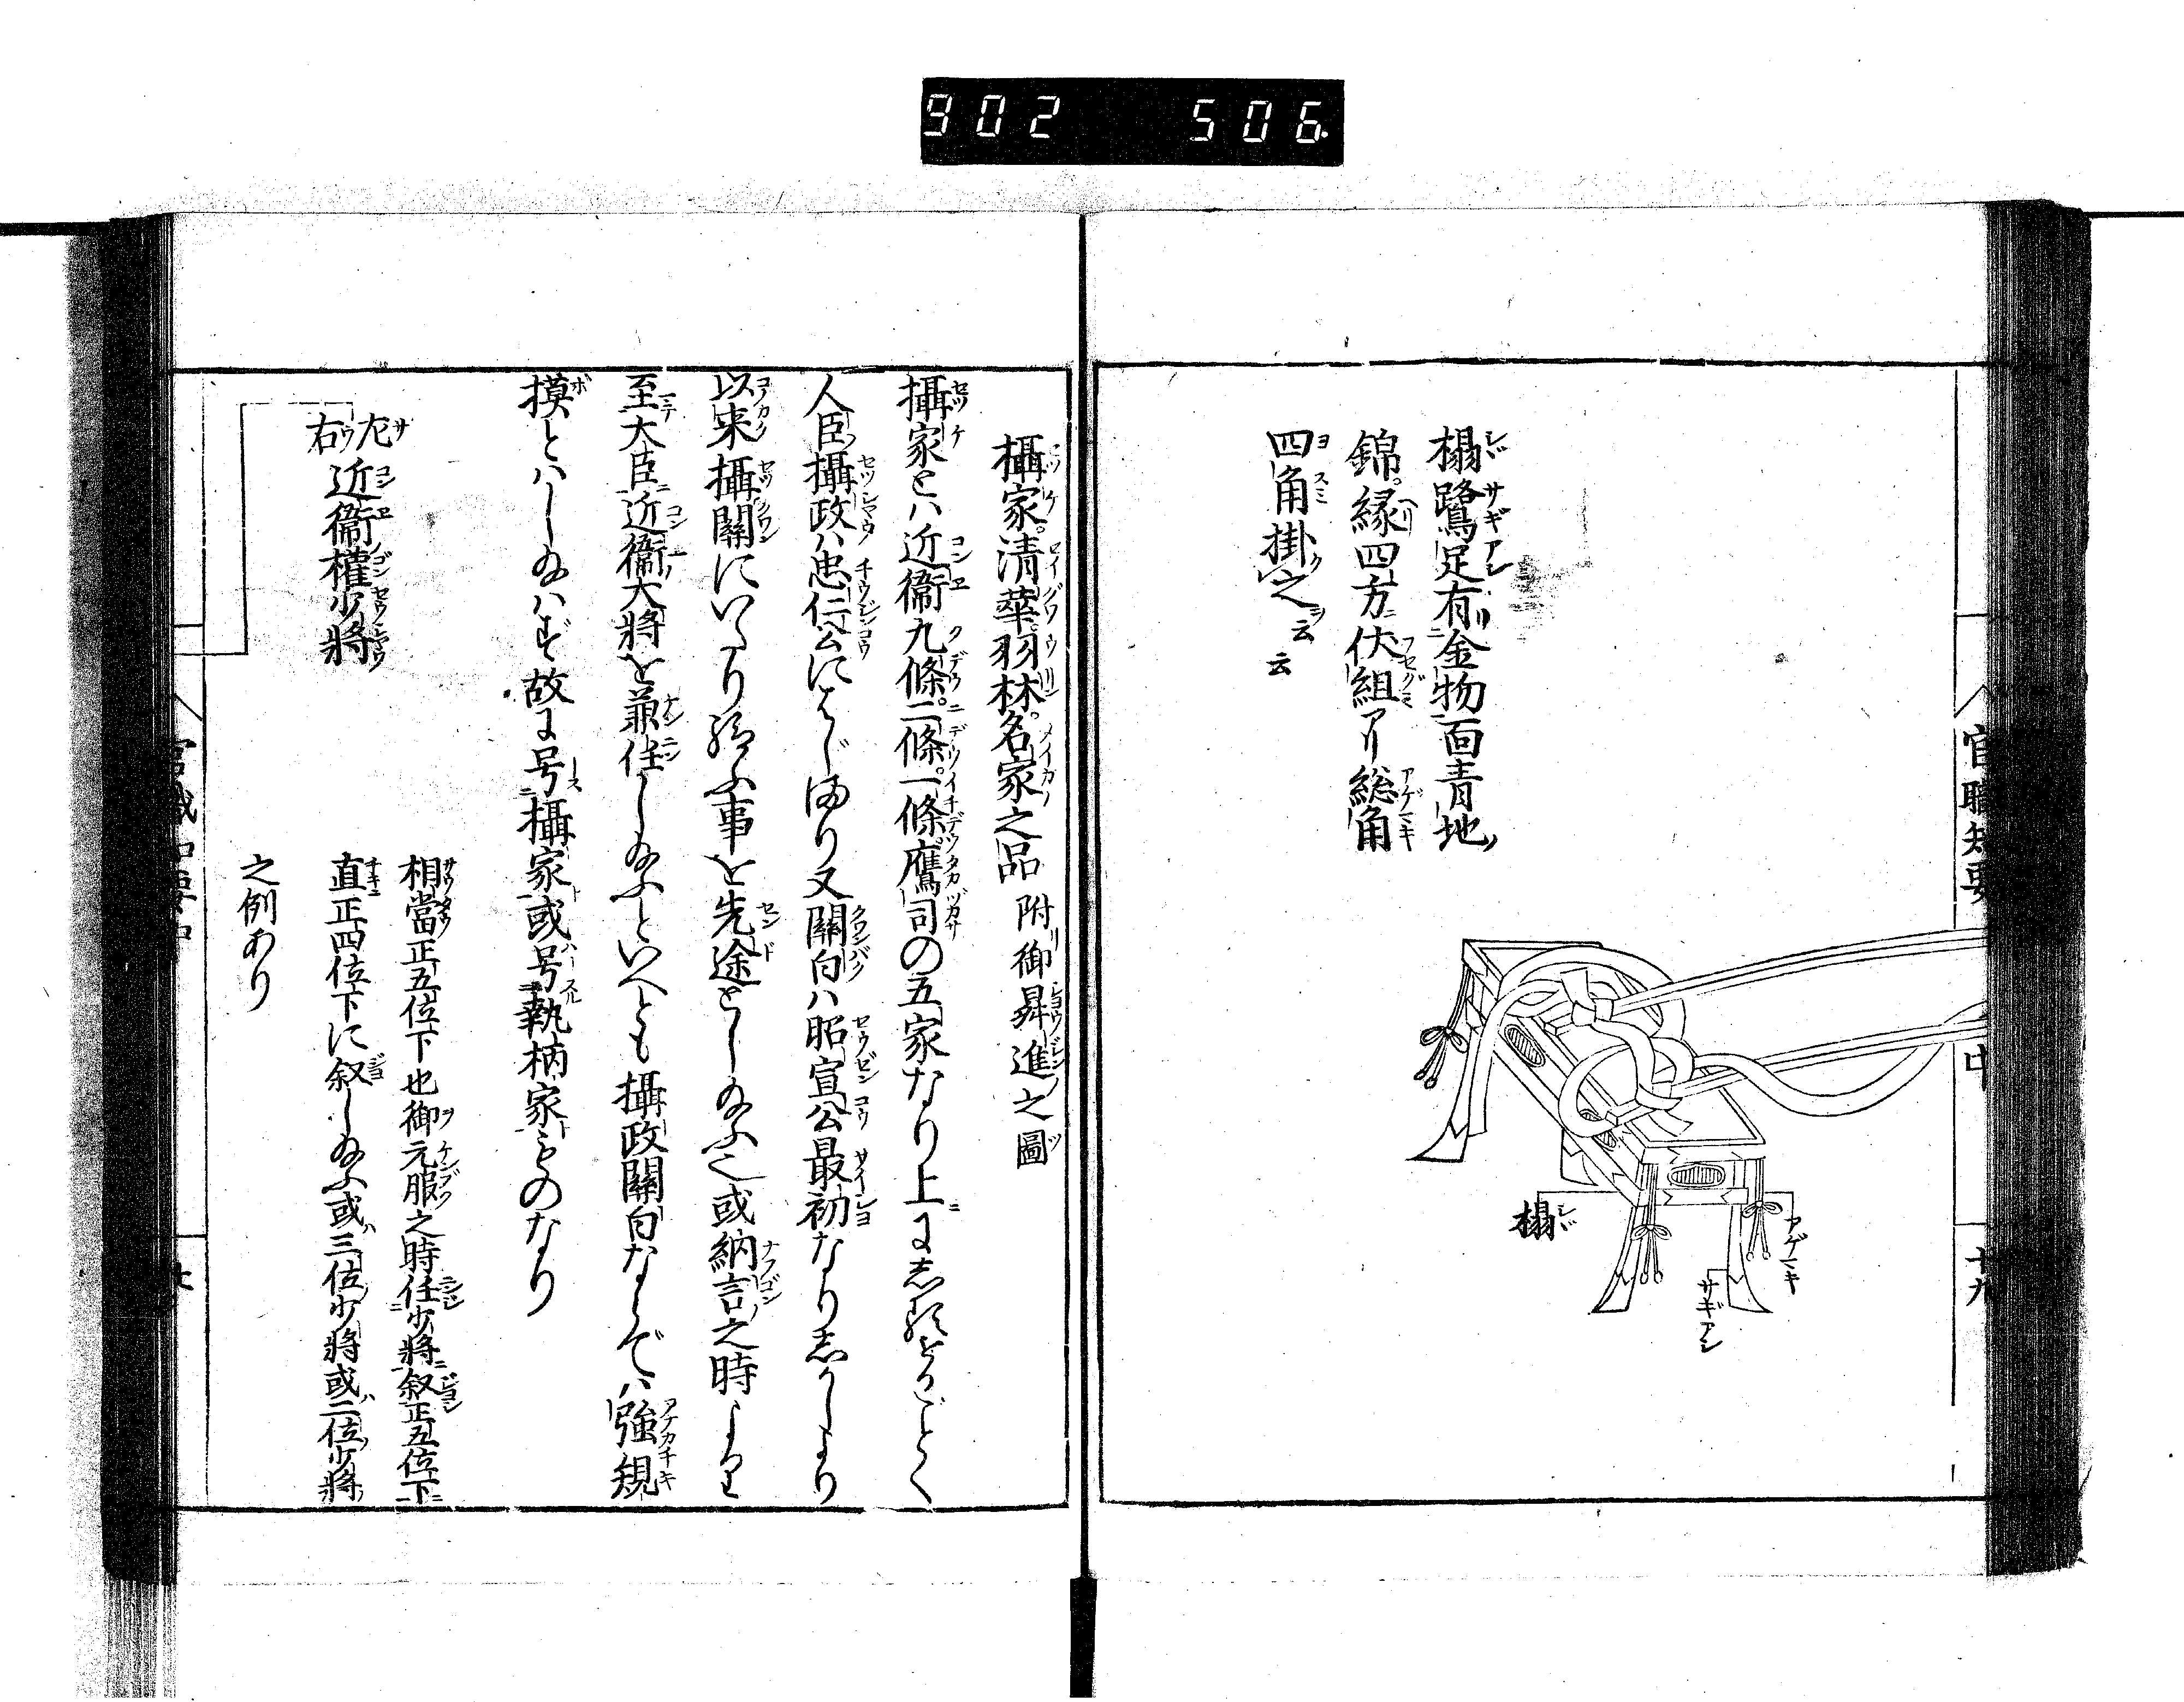 902 506
榻鷺足有金物面青地
錦縁四方伏組アリ総角
四角掛之云云
榻
アゲマキ
サギアシ
官職知要
中
十九
攝家清華羽林名家之品 附御昇進之圖
攝家とハ近衞九條二條一條鷹司の五家なり上にしるすごとく
人臣攝政ハ忠仁公にはじまり又關白ハ昭宣公最初なりしかしより
以来攝關にいたり給ふ事を先途としたまふ也或納言之時より
至大臣近衞大將を兼任し給ふといへとも攝政關白ならでハ強規
摸とハし給はず故に号攝家或号執柄家ものなり
左右近衞權少將
相當正五位下也御元服之時任少將叙正五位下
直正四位下に叙し給ふ或三位少將或二位少將
之例あり